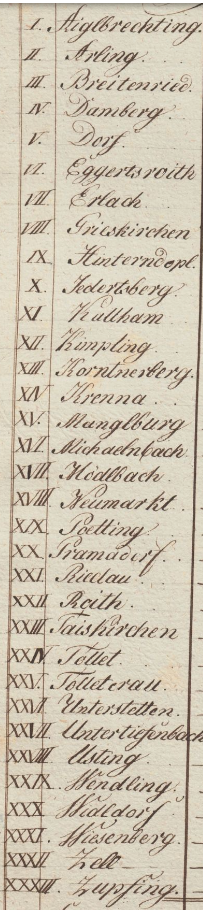 I. Aiglbrechting.
II. Arling.
III. Breitenried.
IV. Damberg.
V. Dorf.
VI. Eggertsroith
VII Erlach.
VIII. Grieskirchen
IX Hinterndopl.
X. Jedertsberg.
XI Kallham
XII. Kimpling
XIII. Korntnerberg.
XIV Krenna.
XV. Manglburg
XVI. Michaelnbach
XVII. Mödlbach.
XVIII. Neumarkt
XIX. Poetting
XX. Pramadorf.
XXI. Riedau.
XXII. Roith.
XXIII. Taiskirchen
XXIV. Tollet.
XXV. Tolleterau.
XXVI. Unterstetten.
XXVII. Untertiefenbach
XXVIII Usting.
XXIX. Wendling.
XXX Waldorf
XXXI. Wiesenberg.
XXXII Zell
XXXIII. Zupfing.